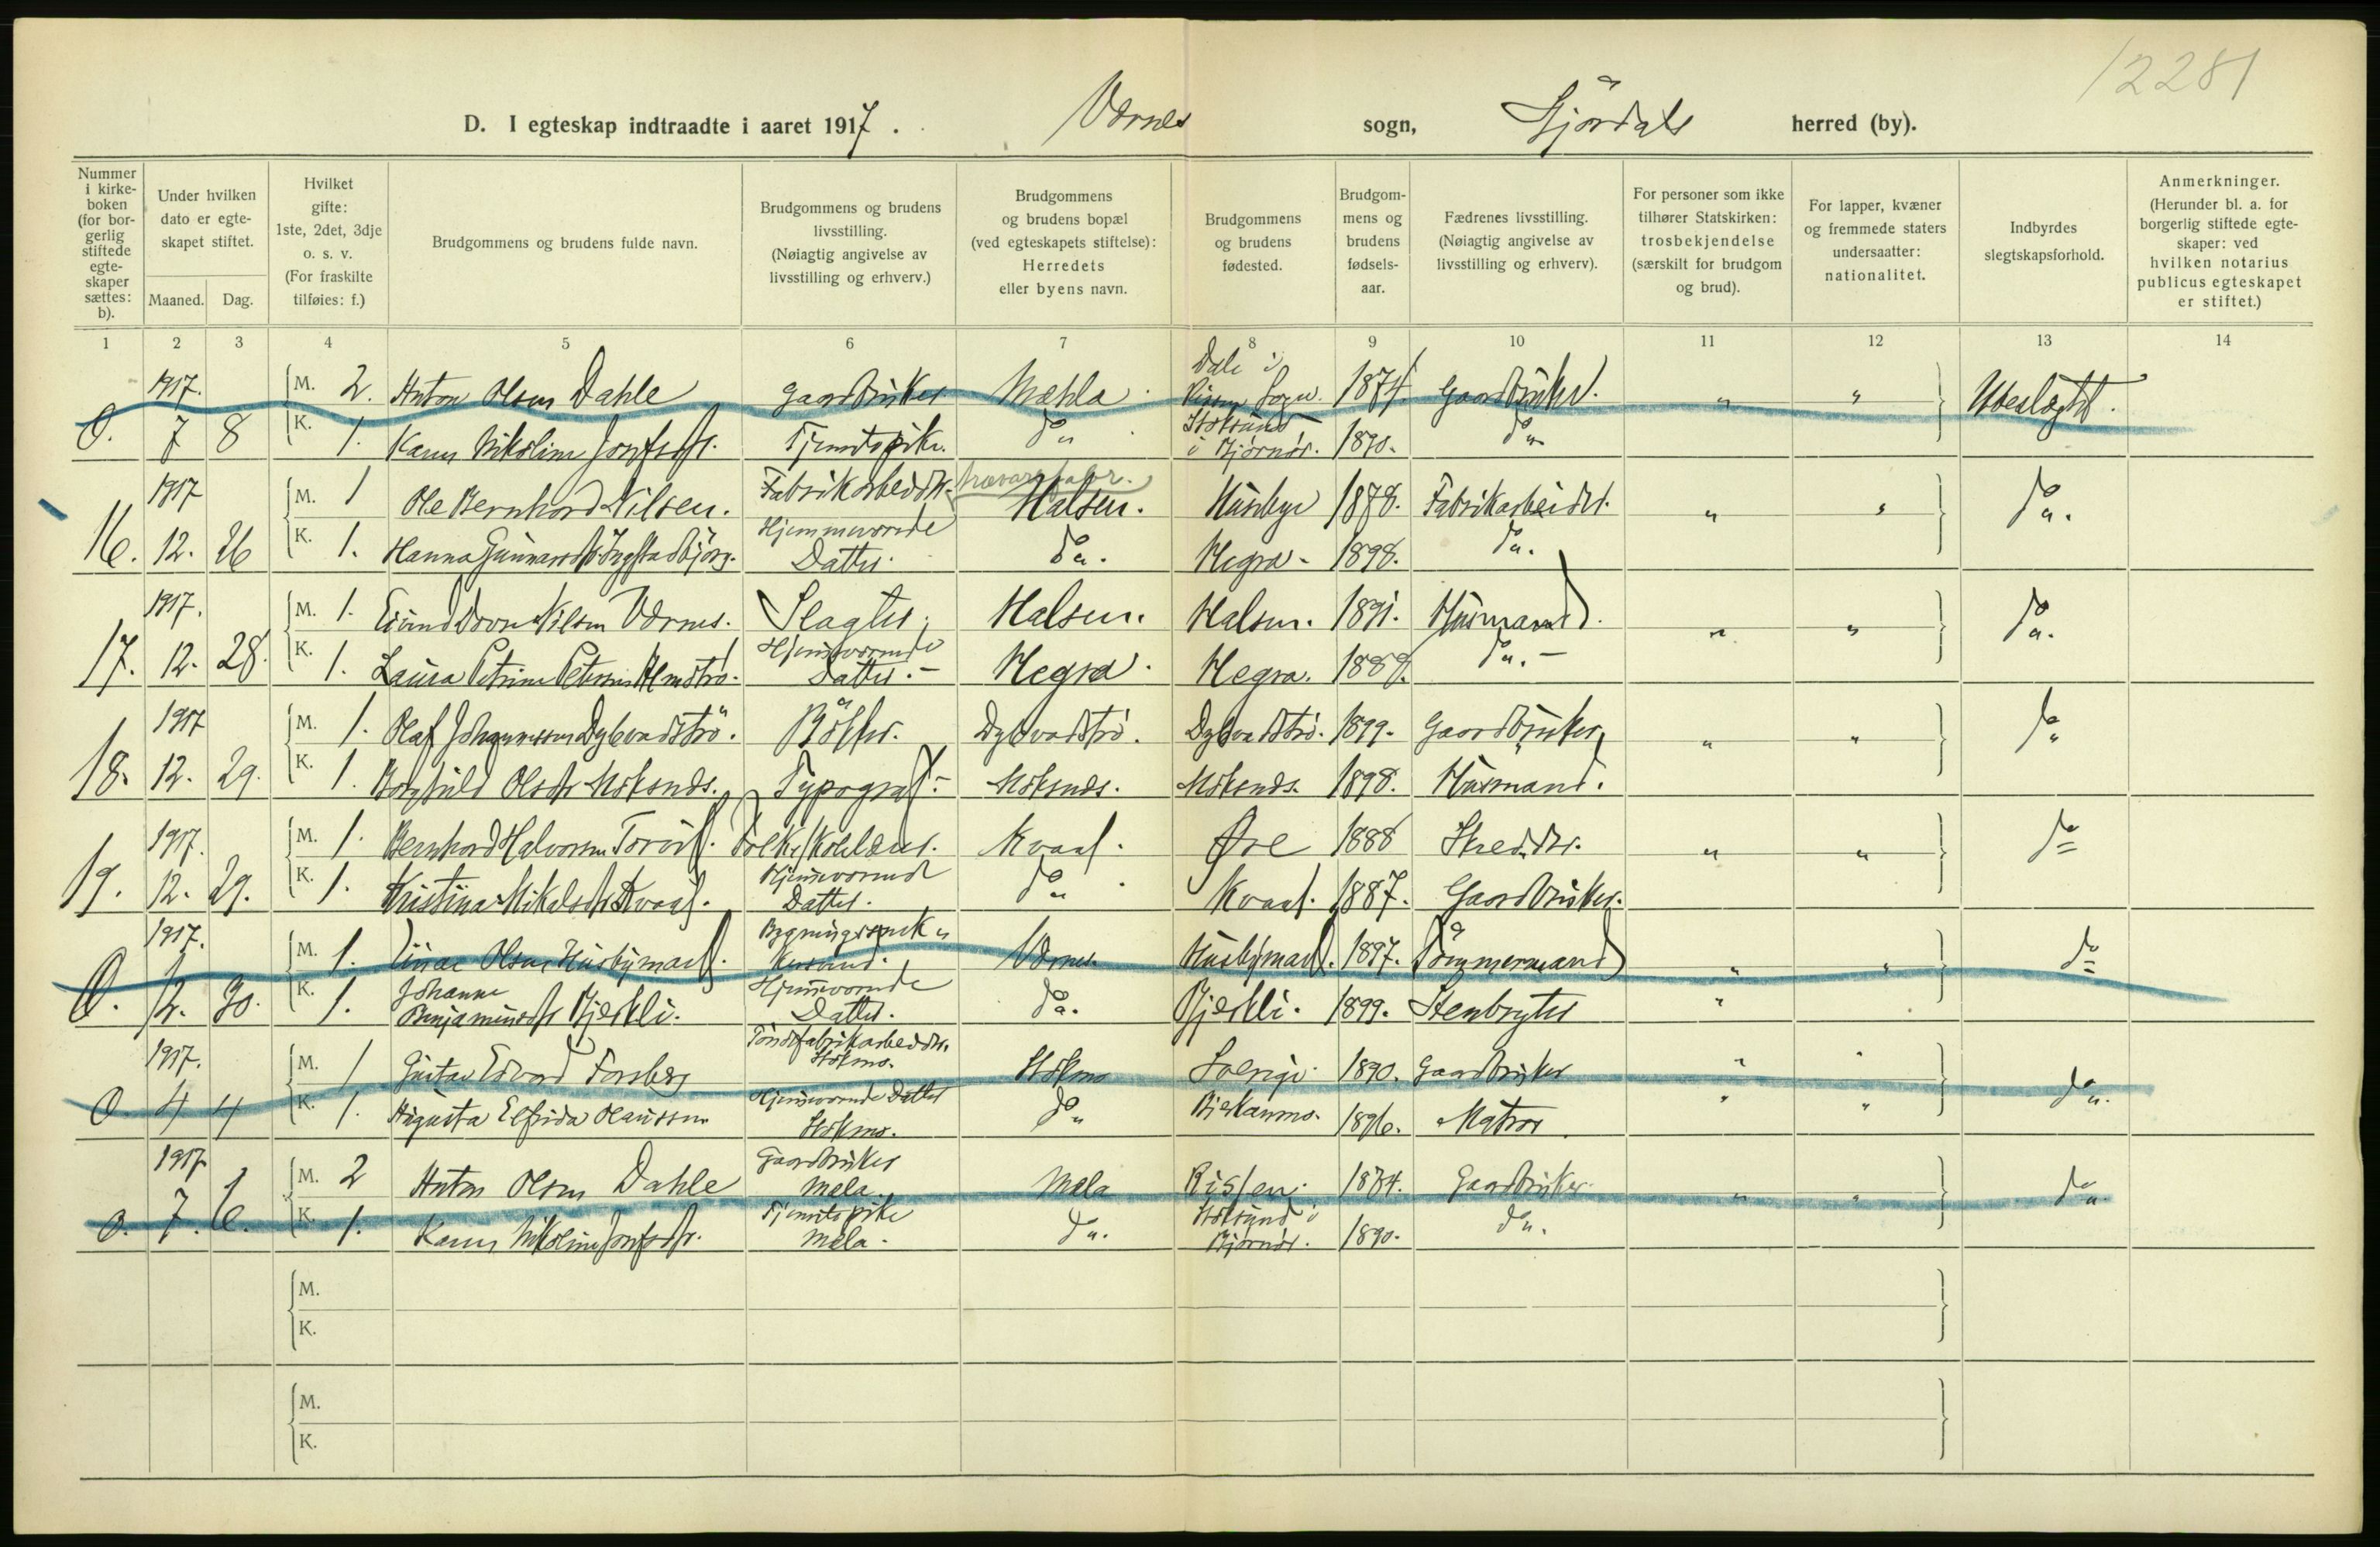 12281
D. I egteskap indtraadte i aaret 1917.
Værnes sogn, Stjørdals herred (by).
Nummer i kirkeboken (for borgerlig stiftede egteskaper sættes: b).
Under hvilken dato er egteskapet stiftet.
Maaned. Dag.
Hvilket gifte: 1ste, 2det, 3dje o. s. v. (For fraskilte tilføies: f.)
Brudgommens og brudens fulde navn.
Brudgommens og brudens livsstilling. (Nøiagtig angivelse av livsstilling og erhverv.)
Brudgommens og brudens bopæl (ved egteskapets stiftelse): Herredets eller byens navn.
Brudgommens og brudens fødested.
Brudgommens og brudens fødselsaar.
Fædrenes livsstilling. (Nøiagtig angivelse av livsstilling og erhverv).
For personer som ikke tilhører Statskirken: trosbekjendelse (særskilt for brudgom og brud).
For lapper, kvæner og fremmede staters undersaatter: nationalitet.
Indbyrdes slegtskapsforhold.
Anmerkninger. (Herunder bl. a. for borgerlig stiftede egteskaper: ved hvilken notarius publicus egteskapet er stiftet.)
1 2 3 4 5 6 7 8 9 10 11 12 13 14
1917. M. 2. Anton Olsen Dahle Gaardbruker Mæhla. Dale i Rissen Sogn. 1874. Gaardbruker. " " Ubeslægtet.
O. 7 8 K. 1. Karen Nikoline Josefsdtr. Tjenestepike. do Stoksund i Bjørnør. 1890. do
1917 M. 1 Ole Bernhard Nilsen. Fabrikarbeider. trævarefabr. Halsen. Husbye 1878. Fabrikarbeider. " " do.
16. 12. 26 K. 1. Hanna Gunnarsdtr Ingstadbjørg. Hjemmeværende Datter. do. Hegra. 1898. do.
1917. M. 1. Nilsen Værnes. Slagter. Halsen. Halsen. 1891. Husmand. " " do.
17. 12. 28. K. 1. Laura Petrine Hjemmeværende Datter. Hegra. Hegra. 1889. do.
1917 M. 1. Olaf Johannessen Dybvadstrø. Bøkker. Dybvadstrø. Dybvadstrø. 1899. Gaardbruker. " " do
18. 12. 29. K. 1. Borghild Olsdtr Moksnes. Typograf. Moksnes. Moksnes. 1898. Husmand.
1917. M. 1. Bernhard Halvorsen Folkeskolelærer. Kvaal. Øre 1888 Skredder. " " do
19. 12. 29. K. 1. Kristina Mikalsdtr Kvaal. Hjemmeværende Datter. do Kvaal. 1887. Gaardbruker.
1917. M. 1. Einar Olsen Husbymark. Værnes. Husbymark. 1897. Tømmermand " " do
O. 12. 30. K. 1. Johanne Benjaminsdtr Bjerkli. Hjemmeværende Datter. do. Bjerkli. 1899. Stenbryter "
1917. M. 1 Gustav Edvard Forsberg Tøndefabrikarbeider. Stokmo. Stokmo Sverige. 1890. Gaardbruker " " do.
O. 4 4 K. 1. Augusta Elfrida Olaussen Hjemmeværende Datter Stokmo. do 1896. Matros " "
1917 M. 2 Anton Olsen Dahle Gaardbruker Mæla. Mæla Rissen. 1874. Gaardbruker. " " do
O. 7. 6. K. 1. Karen Nikoline Josefsdtr. Tjenestepike Mæla. do. Stoksund i Bjørnør. 1890. do.
M.
K.
M.
K.